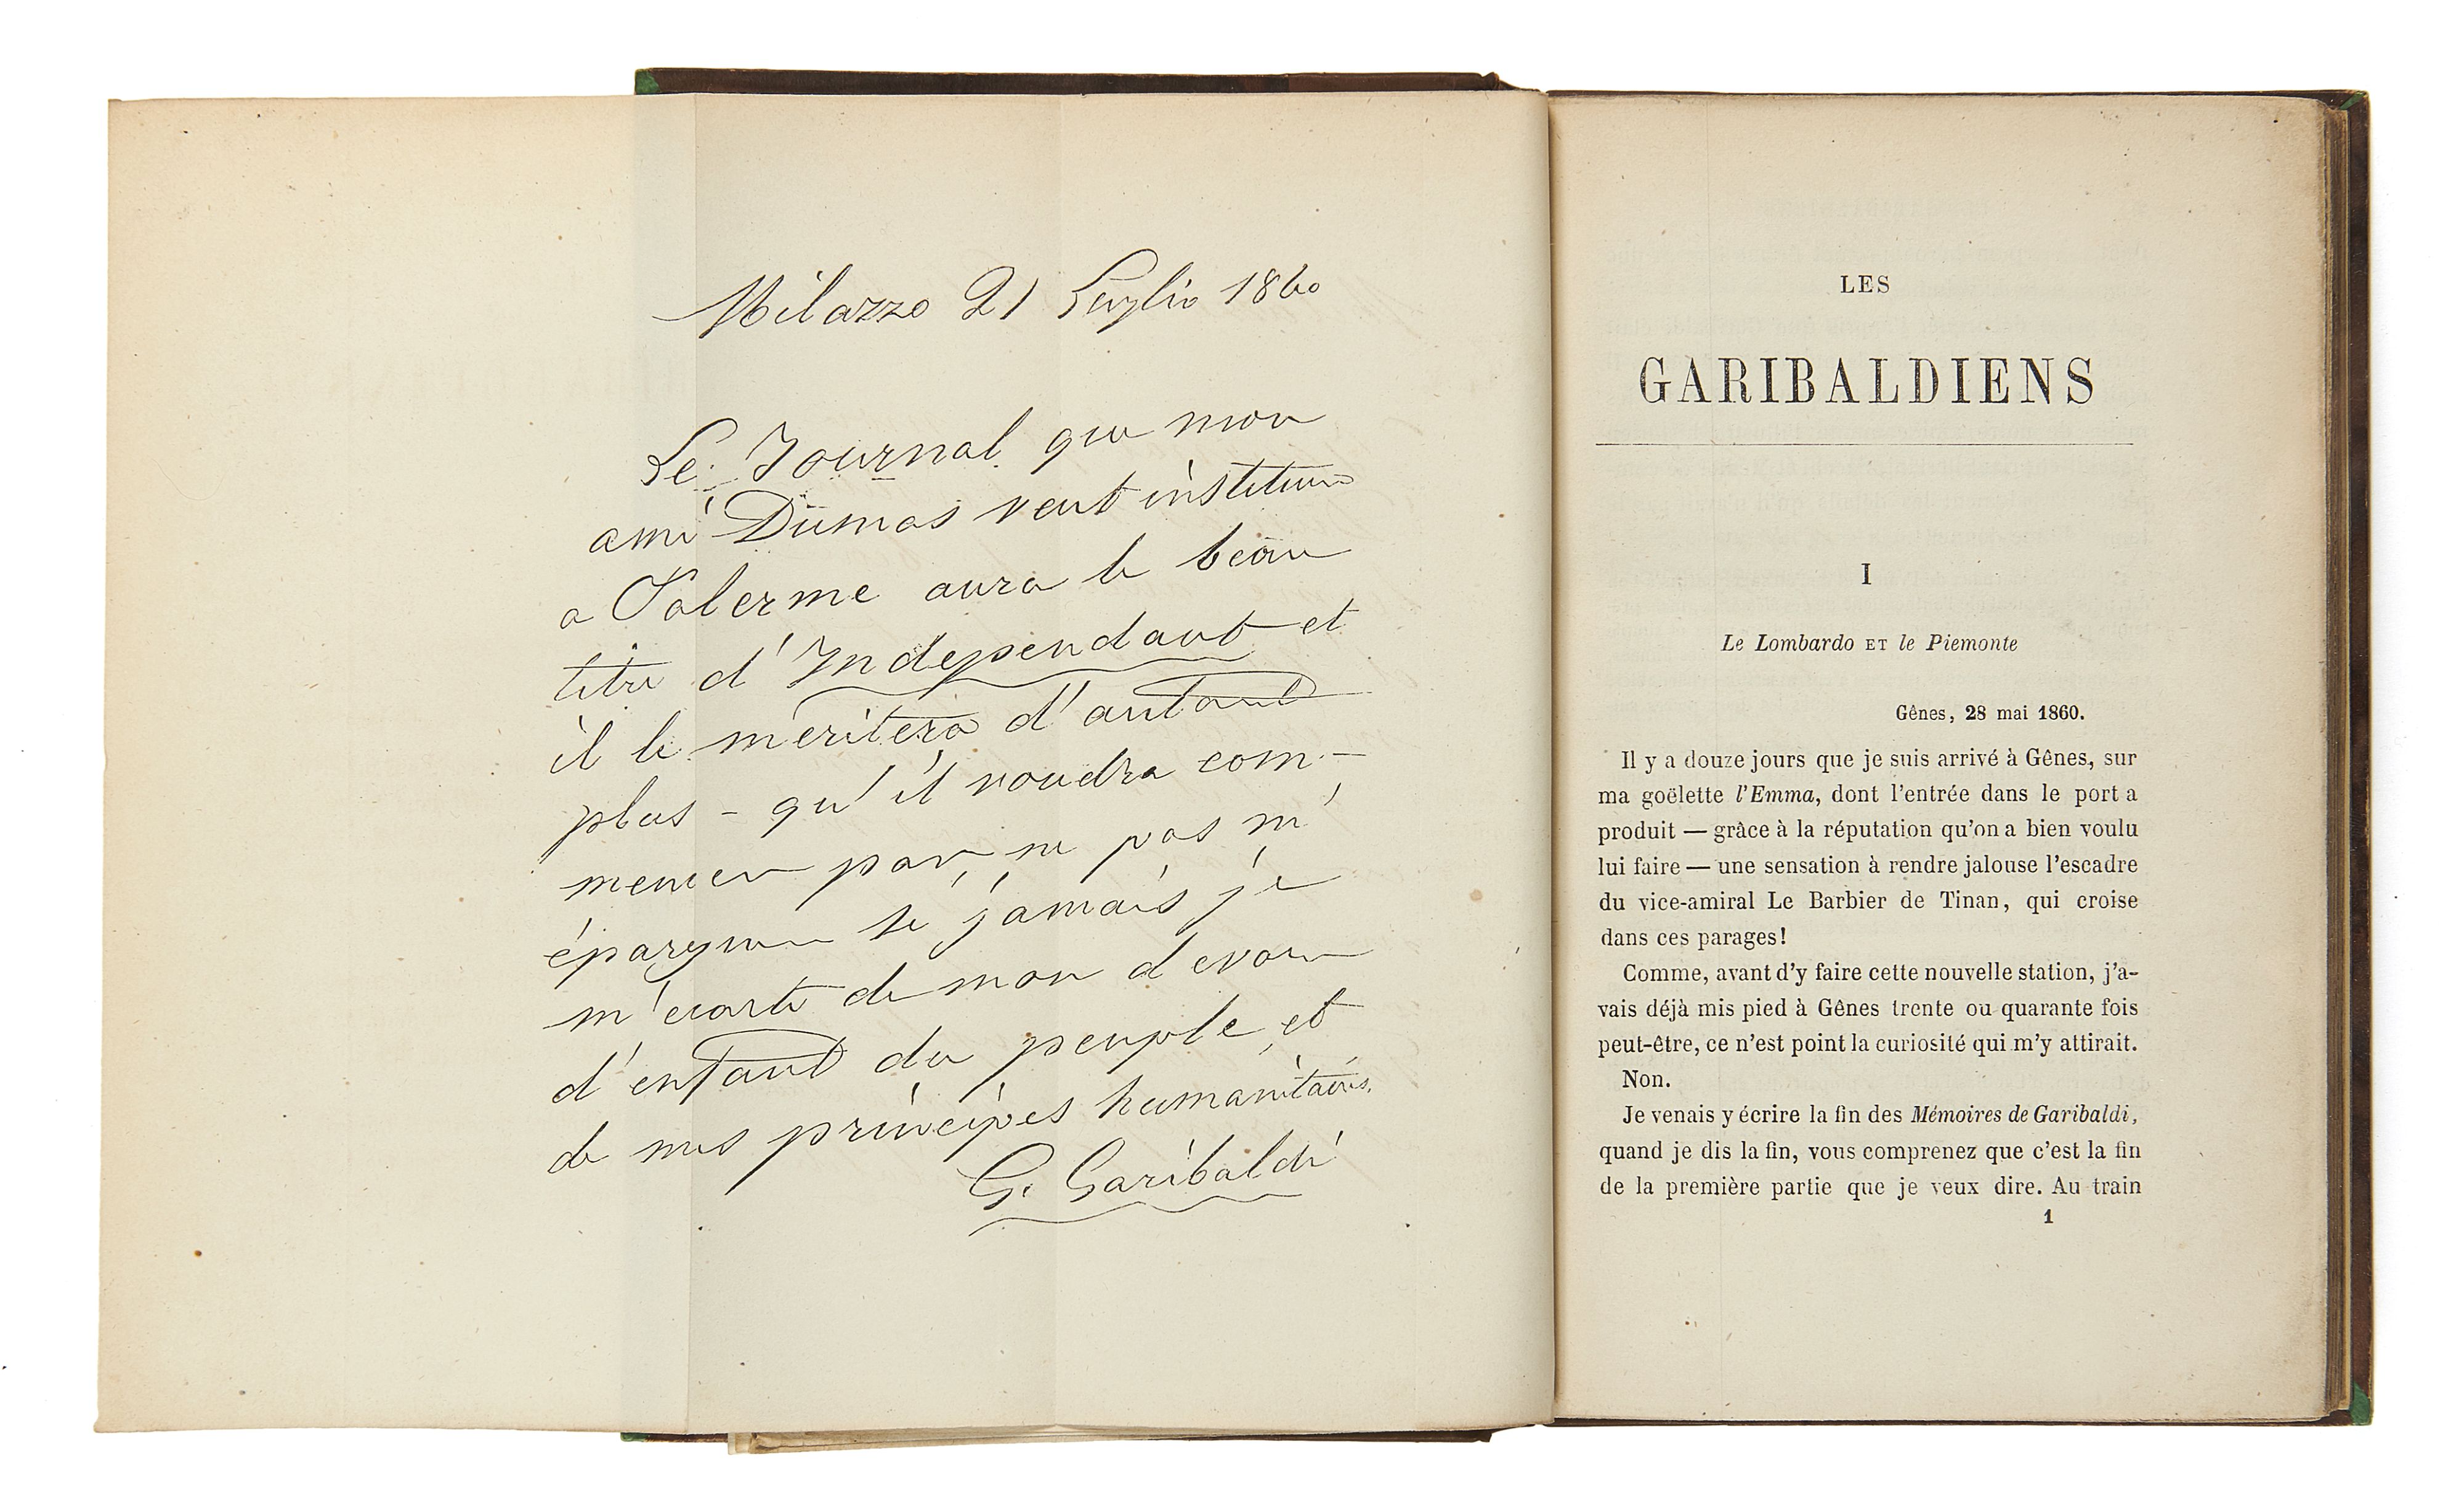 Milazzo 21 Luglio 1860
Le Journal que mon
ami Dumas veut instituer
a Palerme aura le beau
titre d'Independant et
il le meritera d'autant
plus - qu'il voudra com-
mencer par ne pas m'
épargner si jamais je
m'ecarte de mon devoir
d'enfant du peuple, et
de mes principes humanitaires.
G. Garibaldi
LES
GARIBALDIENS
I
Le Lombardo ET le Piemonte
Gênes, 28 mai 1860.
Il y a douze jours que je suis arrivé à Gênes, sur
ma goëlette l'Emma, dont l'entrée dans le port a
produit — grâce à la réputation qu'on a bien voulu
lui faire — une sensation à rendre jalouse l'escadre
du vice-amiral Le Barbier de Tinan, qui croise
dans ces parages!
Comme, avant d'y faire cette nouvelle station, j'a-
vais déjà mis pied à Gênes trente ou quarante fois
peut-être, ce n'est point la curiosité qui m'y attirait.
Non.
Je venais y écrire la fin des Mémoires de Garibaldi,
quand je dis la fin, vous comprenez que c'est la fin
de la première partie que je veux dire. Au train
1